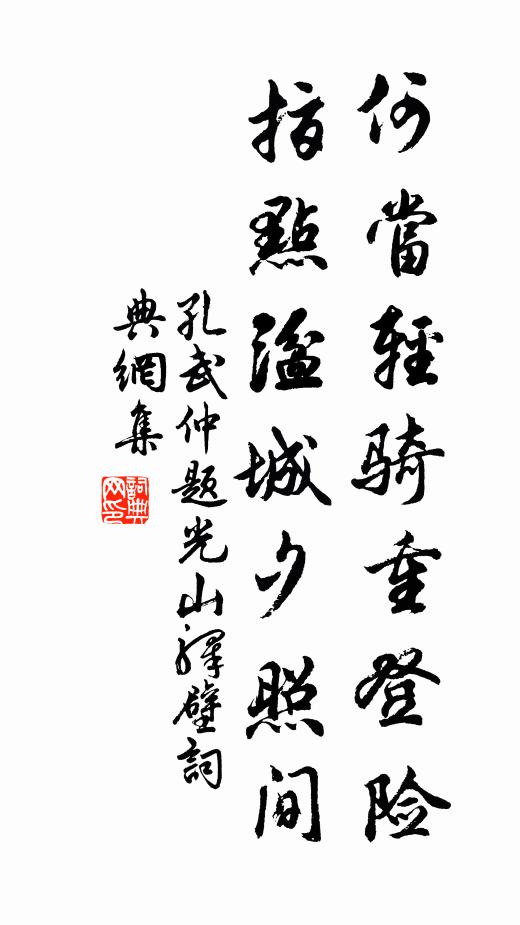 何當輕骑重登险
指點湓城夕照间
孔武仲題光山驛壁詞
典網集
詞典
网印